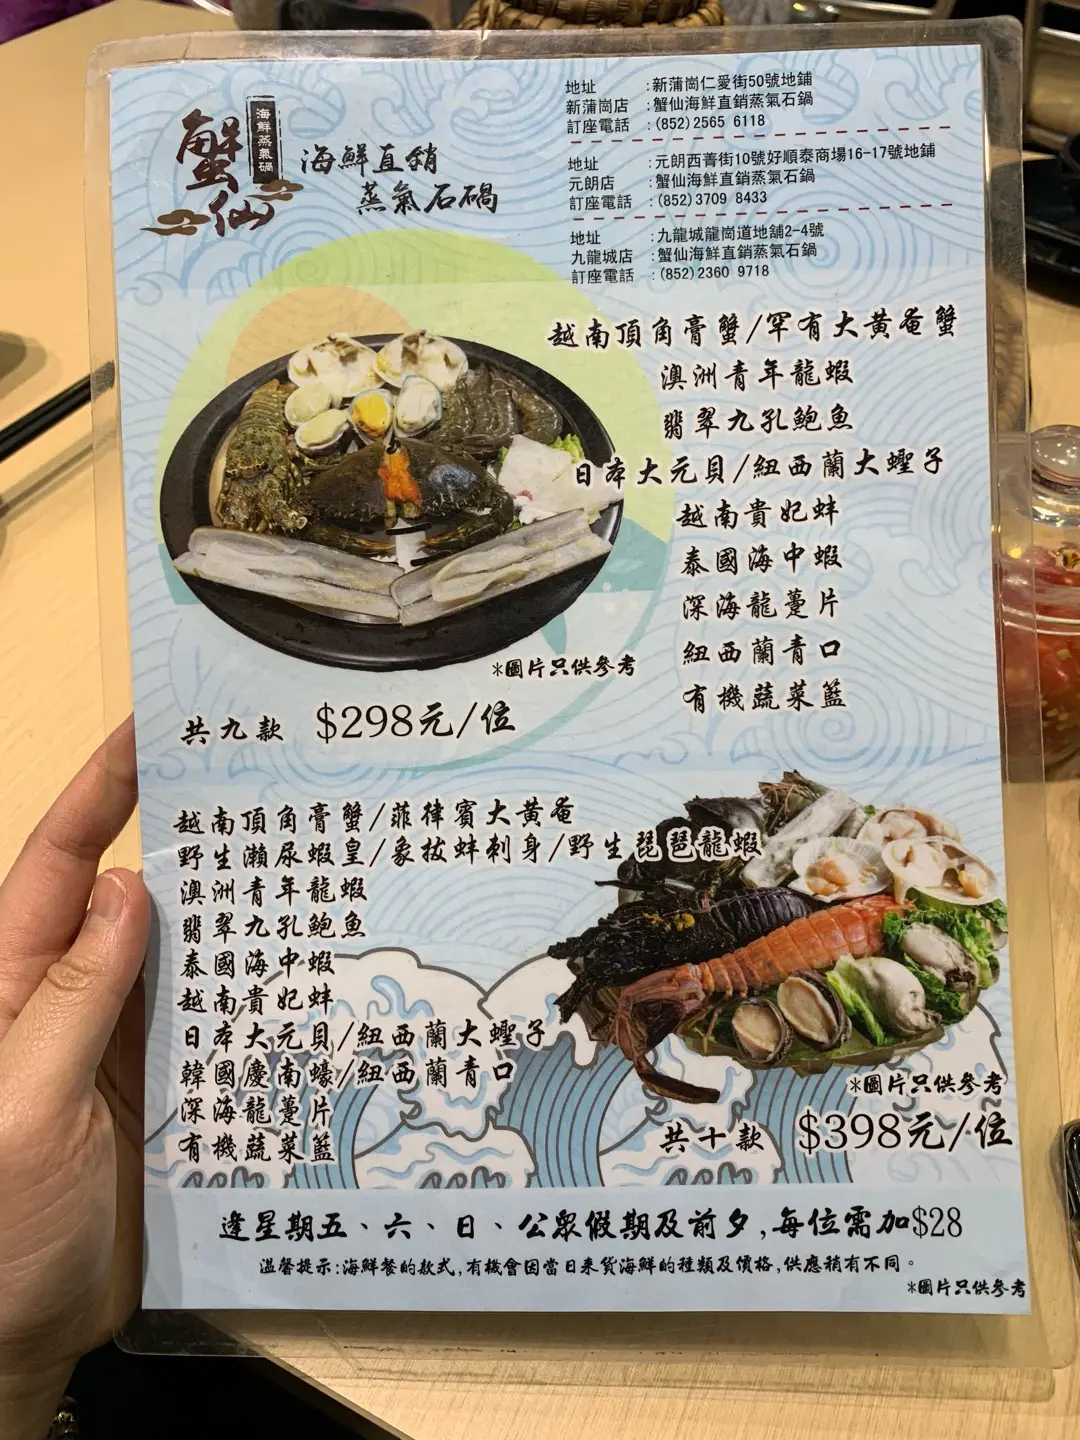 蟹仙
海鮮蒸氣鍋
海鮮直銷
蒸氣石鍋
地址 :新蒲崗仁愛街50號地鋪
新蒲崗店 :蟹仙海鮮直銷蒸氣石鍋
訂座電話 :(852)2565 6118
地址 :元朗西菁街10號好順泰商場16-17號地鋪
元朗店 :蟹仙海鮮直銷蒸氣石鍋
訂座電話 :(852)3709 8433
地址 :九龍城龍崗道地舖2-4號
九龍城店 :蟹仙海鮮直銷蒸氣石鍋
訂座電話 :(852)2360 9718
越南頂角膏蟹/罕有大黃奄蟹
澳洲青年龍蝦
翡翠九孔鮑魚
日本大元貝/紐西蘭大蟶子
越南貴妃蚌
泰國海中蝦
深海龍躉片
紐西蘭青口
有機蔬菜籃
*圖片只供參考
共九款 $298元/位
越南頂角膏蟹/菲律賓大黃奄
野生瀨尿蝦皇/象拔蚌刺身/野生琵琶龍蝦
澳洲青年龍蝦
翡翠九孔鮑魚
泰國海中蝦
越南貴妃蚌
日本大元貝/紐西蘭大蟶子
韓國慶南蠔/紐西蘭青口
深海龍躉片
有機蔬菜籃
*圖片只供參考
共十款 $398元/位
逢星期五、六、日、公眾假期及前夕,每位需加$28
溫馨提示:海鮮餐的款式,有機會因當日來貨海鮮的種類及價格,供應稍有不同。
*圖片只供參考